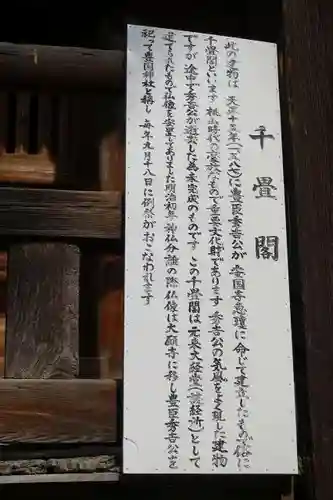 千畳閣
此の建物は 天正十五年(一五八七)に豊臣秀吉公が 安国寺恵瓊に命じて建立したもので俗に
千畳閣といいます 桃山時代の豪放なもので重要文化財であります 秀吉公の気風をよく現した建物
ですが 途中で秀吉公が逝去した為 未完成のものです この千畳閣は元来大経堂(読経所)として
建てられたもので仏像を安置してありました 明治初年 神仏分離の際 仏像は大願寺に移し豊臣秀吉公を
祀って豊国神社と称し 毎年九月十八日に例祭がおこなわれます